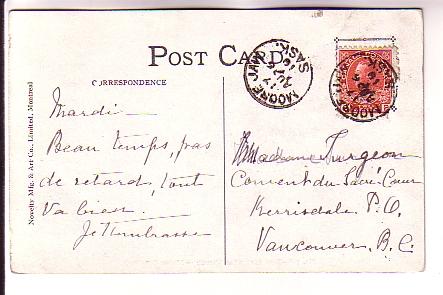 POST CARD
CORRESPONDENCE
Novelty Mfg. & Art Co., Limited, Montreal
MOOSE JAW
SASK
Mardi
Beau temps, pas
de retards, tout
va bien.
Je t'embrasse
Madame Turgeon
Convent du Sacré Coeur
Kerrisdale P.O.
Vancouver, B.C.